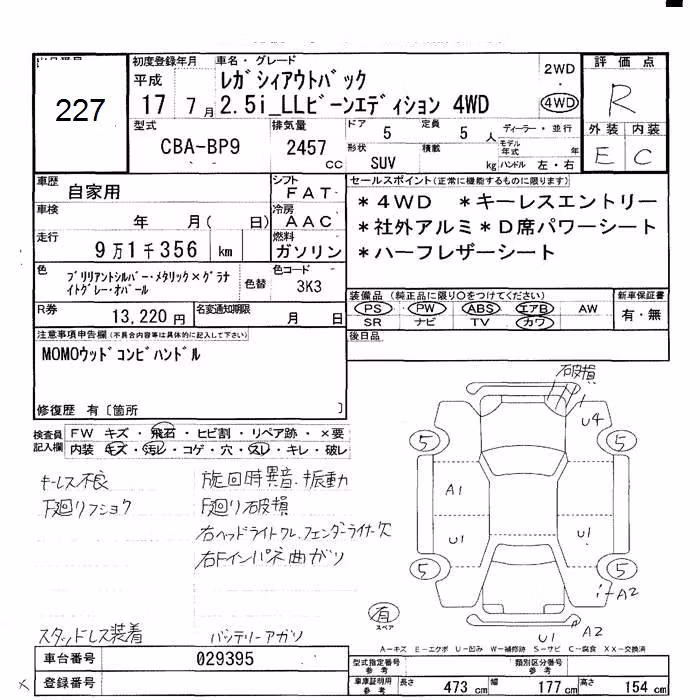 227
初度登録年月
平成
17 7月
車名・グレード
レガシィアウトバック
2.5i_LLビーンエディション 4WD
2WD
4WD
評価点
R
外装 内装
E C
型式
CBA-BP9
排気量
2457
cc
ドア 5
定員 5 人
形状
SUV
積載
kg
ディーラー・並行
モデル年式 年
ハンドル 左・右
車歴
自家用
シフト
FAT
セールスポイント(正常に機能するものに限ります)
*4WD *キーレスエントリー
*社外アルミ*D席パワーシート
*ハーフレザーシート
車検
年 月( 日)
冷房
AAC
走行
9万1千356 km
燃料
ガソリン
色
ブリリアントシルバー・メタリック×グラナ
イトグレー・オパール
色替
色コード
3K3
装備品(純正品に限り○をつけてください)
PS PW ABS エアB AW
SR ナビ TV カワ
新車保証書
有・無
R券
13,220円
名変通知期限
月 日
後日品
注意事項申告欄(不具合内容等は具体的に記入して下さい)
MOMOウッドコンビハンドル
修復歴 有〔箇所 〕
検査員
記入欄
FW キズ・飛石・ヒビ割・リペア跡・×要
内装 キズ・汚レ・コゲ・穴・スレ・キレ・破レ
キーレス不良
下廻りフショク
旋回時異音・振動
下廻り破損
右ヘッドライトワレ、フェンダーライナー欠
右Fインパネ曲ガリ
スタッドレス装着
バッテリーアガリ
破損
U4
5
5
A1
U1
U1
5
5
A2
有
スペア
U1
A2
A-キズ E-エクボ U-凹み W-補修跡 S-サビ C-腐食 XX-交換済
車台番号
029395
登録番号
型式指定番号
参考
類別区分番号
参考
車庫証明用
参考
長さ 473 cm
幅 177 cm
高さ 154 cm